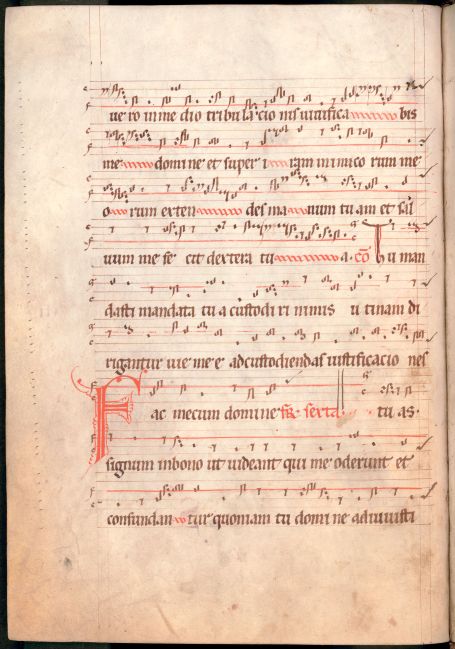 ve ro in me dio tribu la cio nis vivifica bis
me domine et super i ram inimico rum me
o rum exten des ma num tu am et sal
vum me fe cit dextera tu a. co Tu man
dasti mandata tu a custodi ri nimis u tinam di
rigantur vie me e ad custodiendas iustificacio nes
Fac mecum domine feria sexta tu as.
signum in bono ut videant qui me oderunt et
confundan tur quoniam tu domi ne adiuvisti